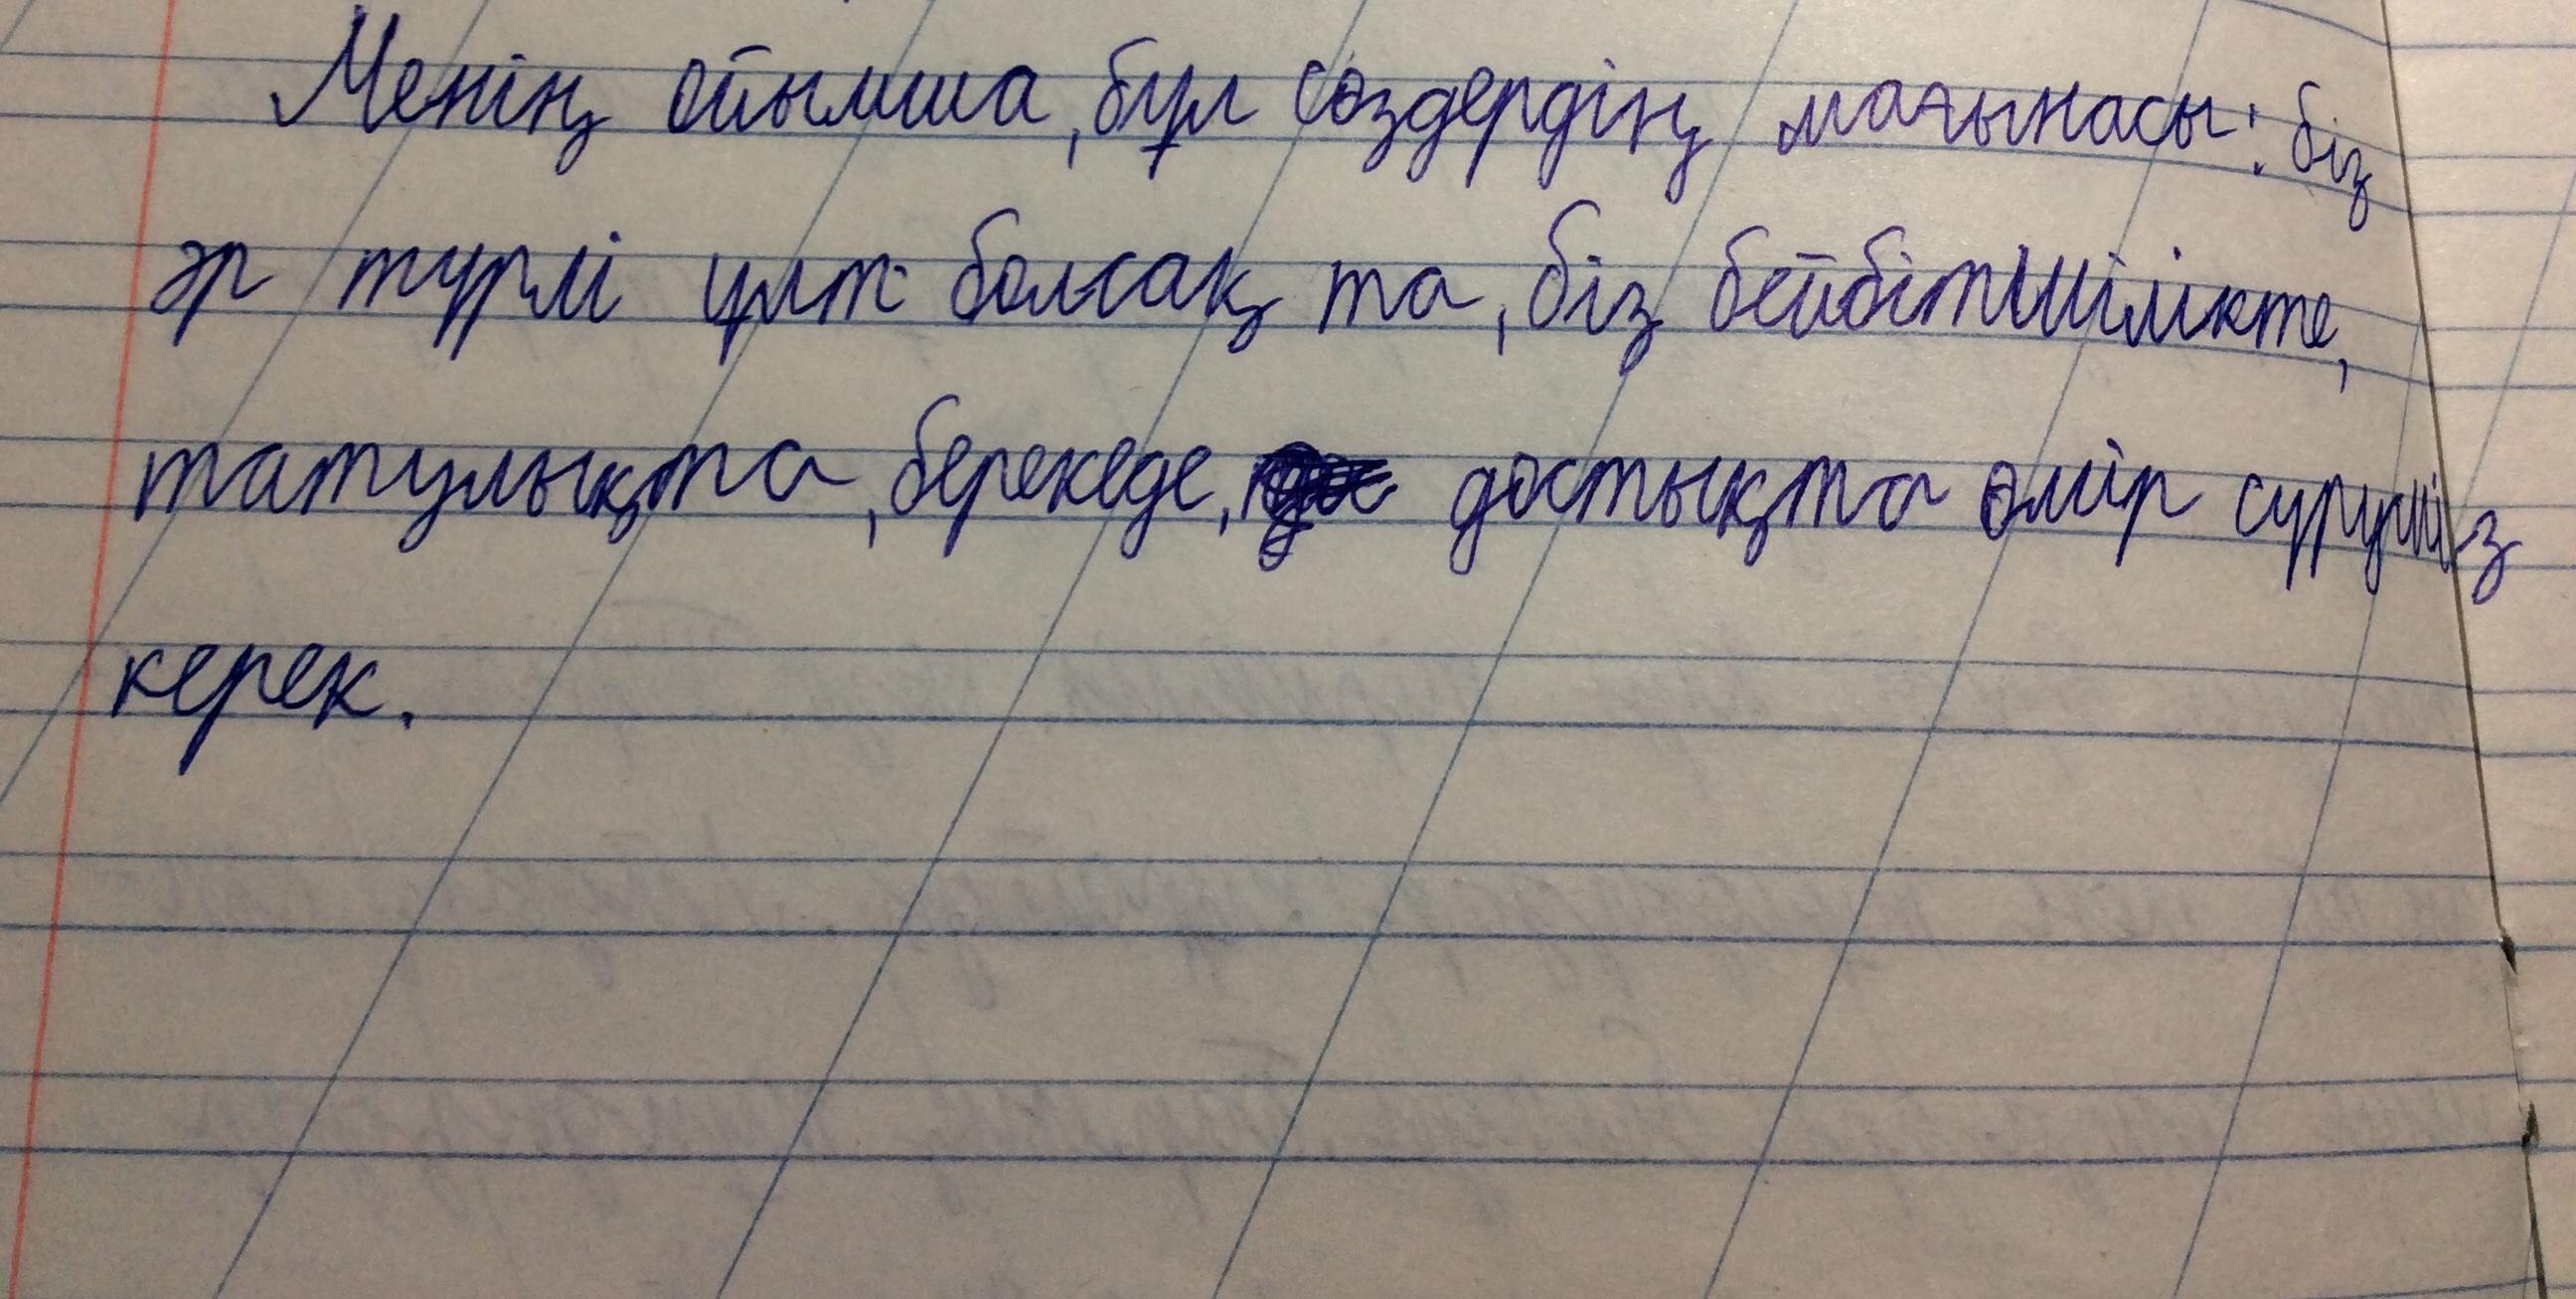 Менің ойымша, бұл сөздердің мағынасы: біз
әр түрлі ұлт болсақ та, біз бейбітшілікте,
татулықта, берекеде, достықта өмір сүруіміз
керек.